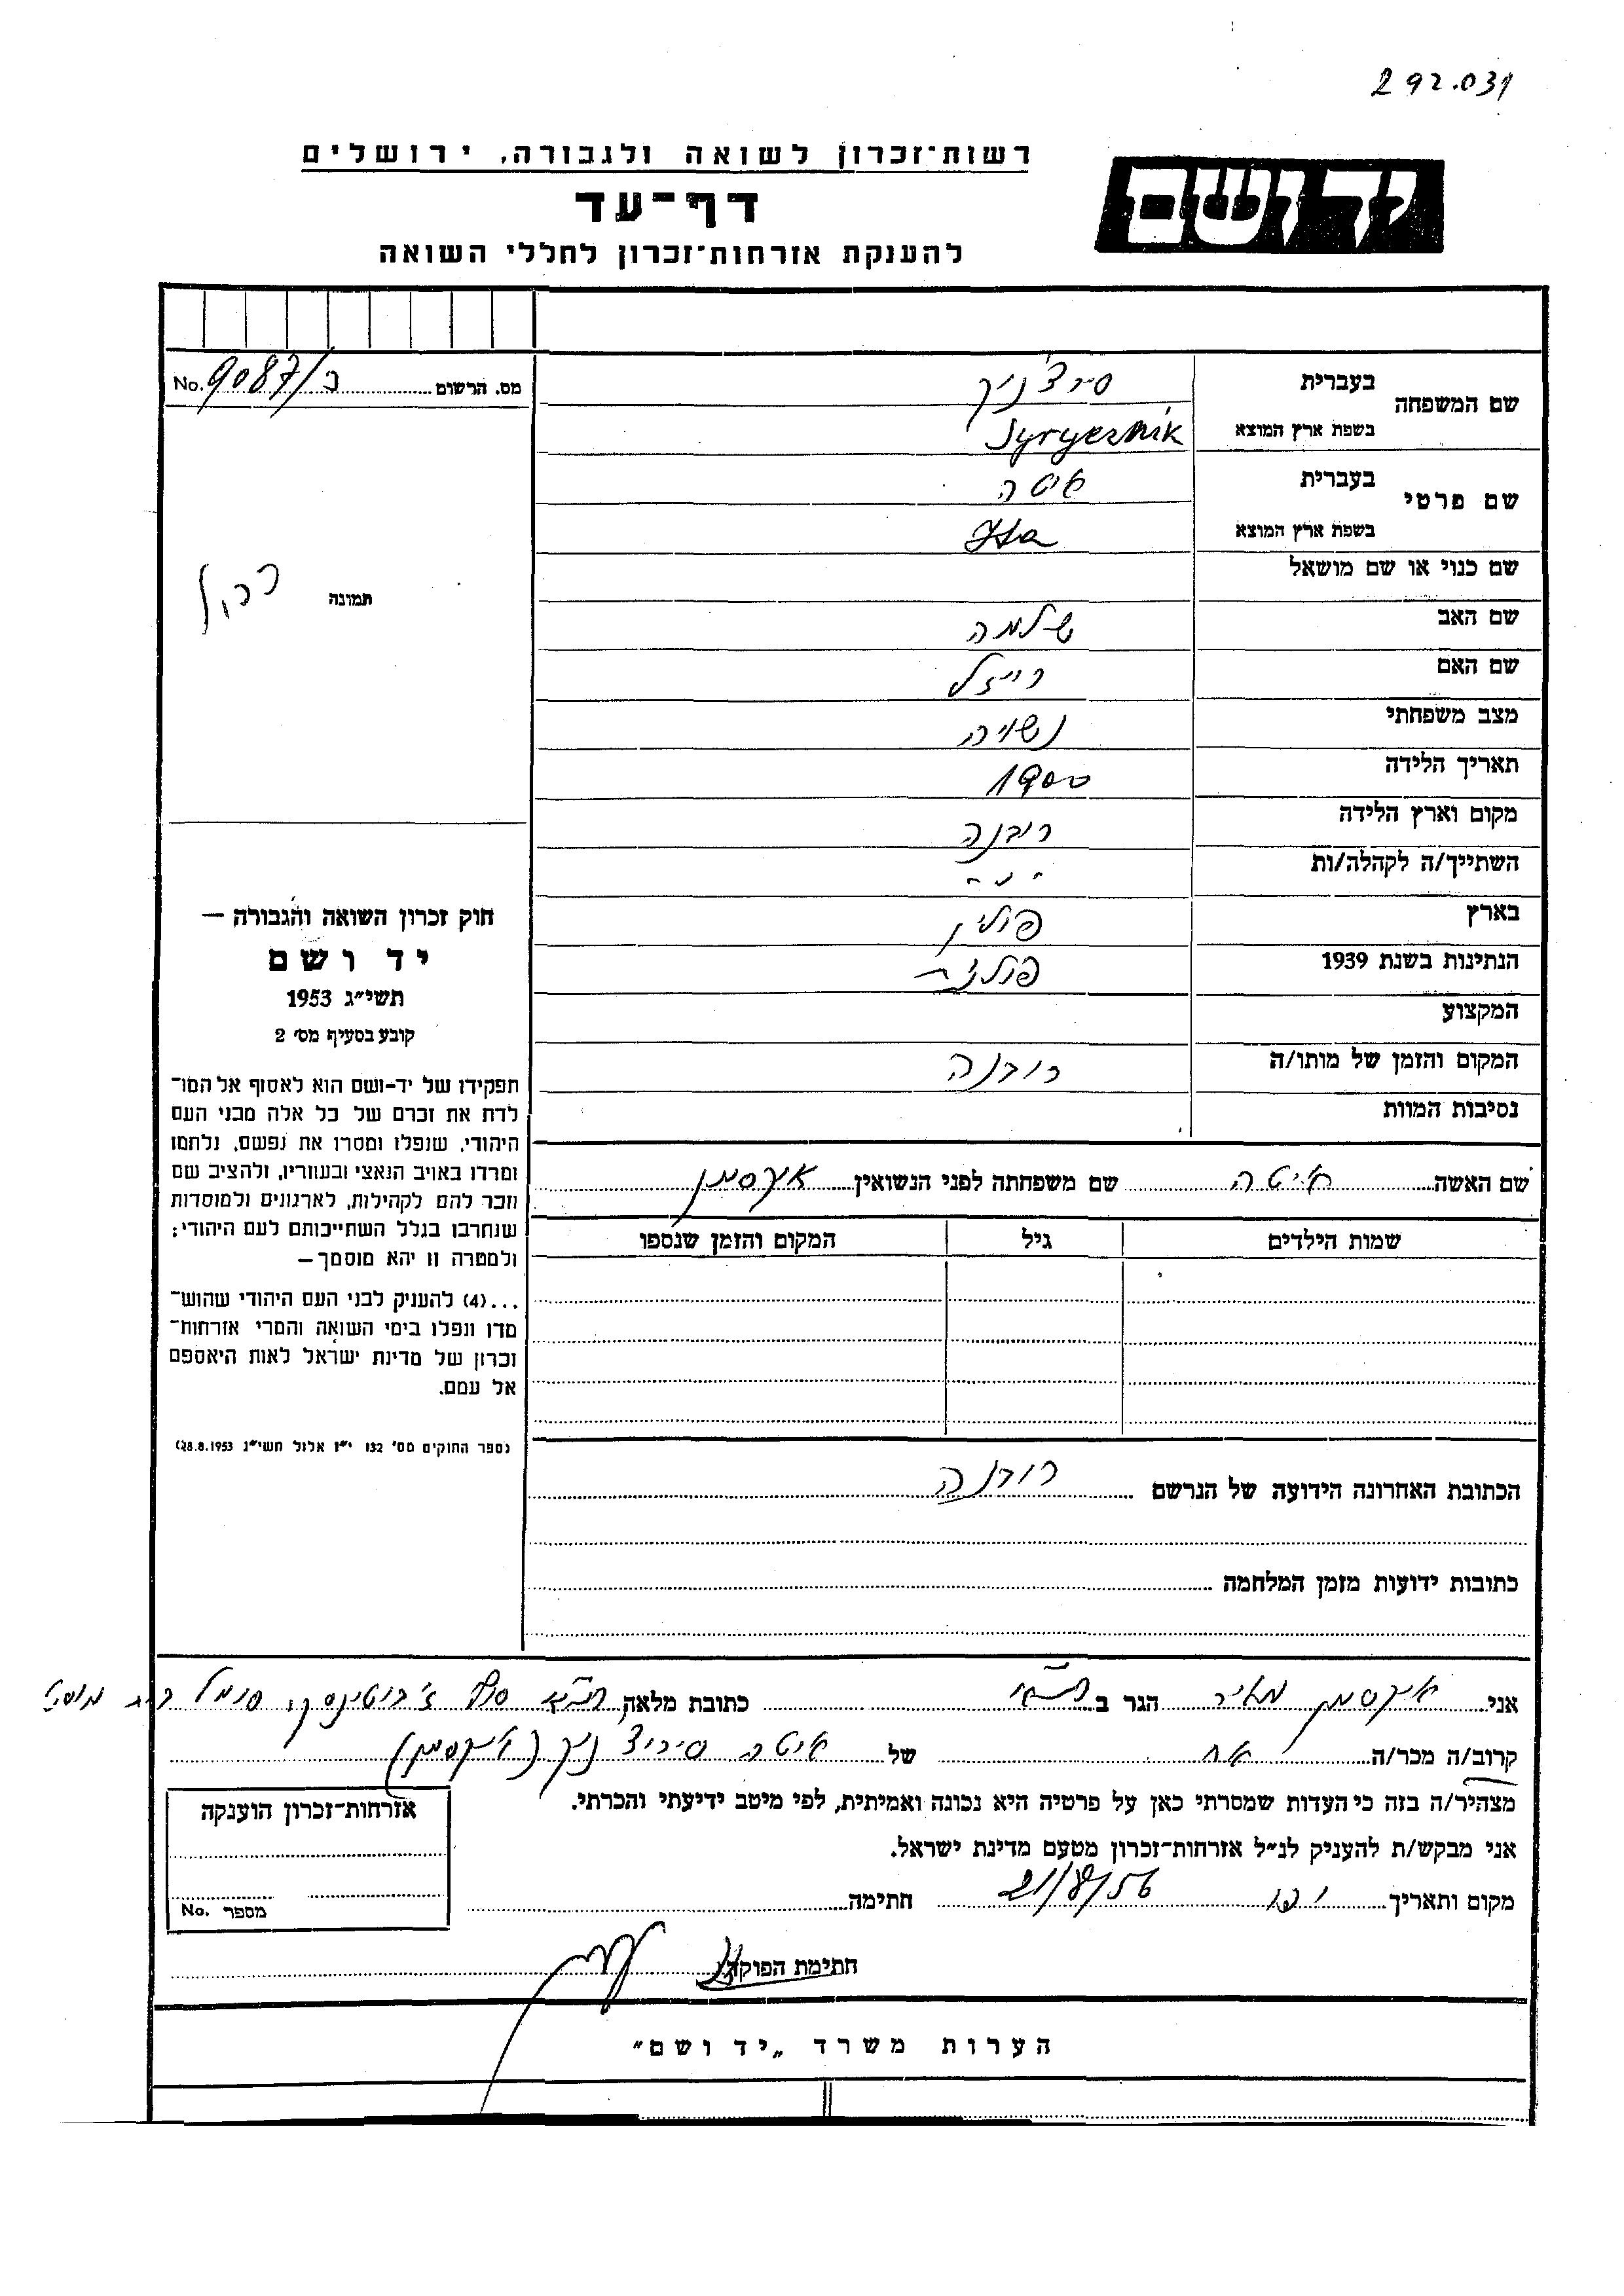 292.031
רשות־זכרון לשואה ולגבורה, ירושלים
יד ושם
דף־עד
להענקת אזרחות־זכרון לחללי השואה
מס. הרשום 9087/כ No.
שם המשפחה בעברית סירצ'ניק
בשפת ארץ המוצא Syryeznik
שם פרטי בעברית איטה
בשפת ארץ המוצא Ita
שם כנוי או שם מושאל
תמונה
שם האב שלמה
שם האם רייזל
מצב משפחתי נשויה
תאריך הלידה 1900
מקום וארץ הלידה רובנה
השתייך/ה לקהלה/ות - " -
בארץ פולין
הנתינות בשנת 1939 פולנית
המקצוע
המקום והזמן של מותו/ה רובנה
נסיבות המוות
שם האשה איטה שם משפחתה לפני הנשואין אקסמן
שמות הילדים גיל המקום והזמן שנספו
הכתובת האחרונה הידועה של הנרשם רובנה
כתובות ידועות מזמן המלחמה
חוק זכרון השואה והגבורה —
יד ושם
תשי״ג 1953
קובע בסעיף מס׳ 2
תפקידו של יד-ושם הוא לאסוף אל המו־
לדת את זכרם של כל אלה מבני העם
היהודי, שנפלו ומסרו את נפשם, נלחמו
ומרדו באויב הנאצי ובעוזריו, ולהציב שם
וזכר להם לקהילות, לארגונים ולמוסדות
שנחרבו בגלל השתייכותם לעם היהודי;
ולמטרה זו יהא מוסמך—
...(4) להעניק לבני העם היהודי שהוש־
מדו ונפלו בימי השואה והמרי אזרחות־
זכרון של מדינת ישראל לאות היאספם
אל עמם.
(ספר החוקים מס׳ 132 י״ז אלול תשי״ג 28.8.1953)
אני אקסמן מאיר הגר ב כתובת מלאה סוף ז'בוטינסקי
קרוב/ה מכר/ה אח של איטה סירוצ'ניק (אקסמן)
מצהיר/ה בזה כי העדות שמסרתי כאן על פרטיה היא נכונה ואמיתית, לפי מיטב ידיעתי והכרתי.
אני מבקש/ת להעניק לנ״ל אזרחות־זכרון מטעם מדינת ישראל.
מקום ותאריך יפו 21/8/56 חתימה
חתימת הפוקד
אזרחות־זכרון הוענקה
מספר No.
הערות משרד „יד ושם״